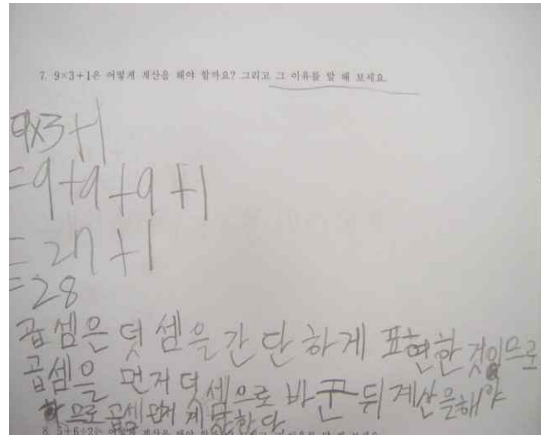 7. 9×3+1은 어떻게 계산을 해야 할까요? 그리고 그 이유를 말 해 보세요.
9×3+1
=9+9+9+1
=27+1
=28
곱셈은 덧셈을 간단하게 표현한 것이므로
곱셈을 먼저 덧셈으로 바꾼 뒤 계산을해야
하므로 곱셈 먼저 계산한다
8. 5+6÷2는 어떻게 계산을 해야